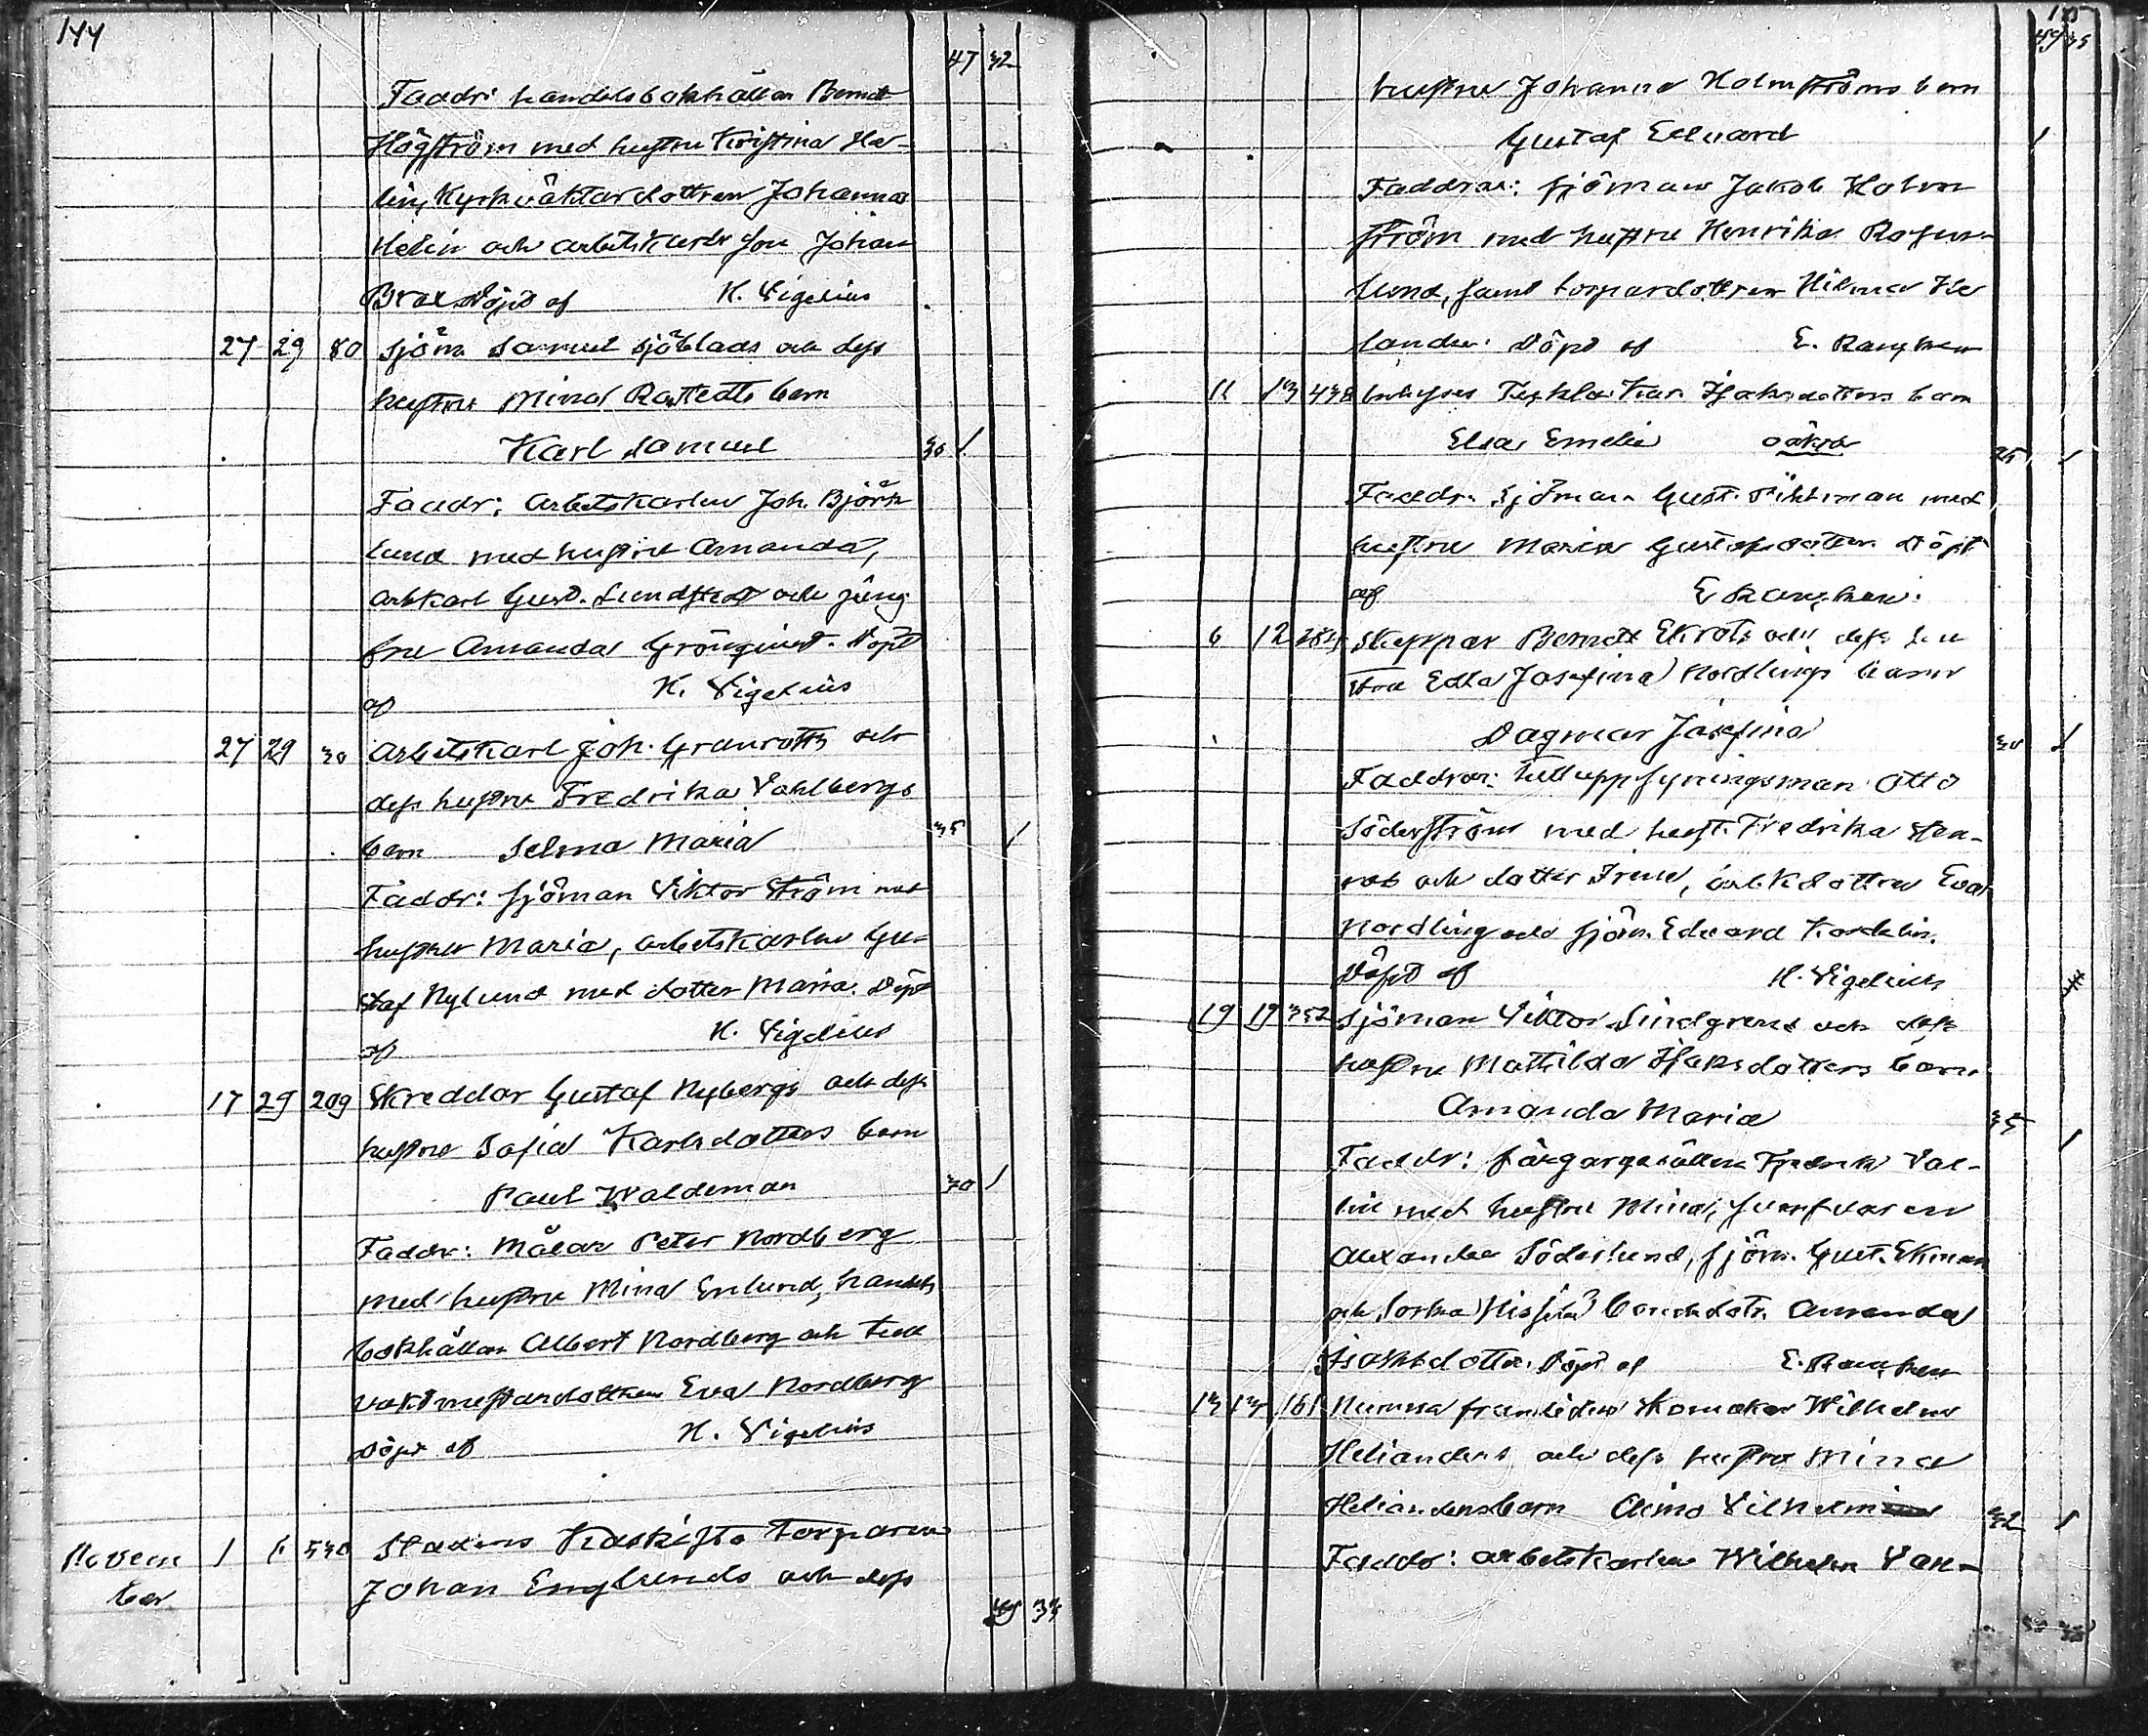 144
47 32
Faddr: handelsbokhållar Berndt
Högström med hustru Kristina He-
lin, Kyrkväktardottren Johanna
Helin och arbetskarls son Johan
Brax Döpt af H. Vigelius
27 29 80 Sjöm. Samuel Sjöblads och dess
hustru Mina Rastedts barn
Karl Samuel 30 1
Faddr: Arbetskarlen Joh. Björk
lund med hustru Amanda,
arbkarl Gust. Lundstedt och jung
fru Amanda Grönqvist. Döpt
af H. Vigelius
27 29 30 Arbetskarl Joh. Granroths och
dess hustru Fredrika Dahlbergs
barn Selma Maria 35 1
Faddr: sjöman Viktor Ström med
hustru Maria, arbetskarlen Gu-
staf Nylund med dotter Maria. Döpt
af H. Vigelius
17 29 209 Skreddar Gustaf Nybergs och dess
hustru Sofia Karlsdotters barn
Paul Waldemar 30 1
Faddr: Målar Peter Nordberg
med hustru Mina Enlund, handels
bokhållar Albert Nordberg och tull
vaktmestardottren Eva Nordberg
Döpt af H. Vigelius
Novem 1 6 530 Stadens Kaskisto torparen
ber Johan Englunds och dess
49 33
145
49 33
hustru Johanna Holmströms barn
Gustaf Edvard 1
Faddrar: sjöman Jakob Holm
ström med hustru Henrika Rosen-
lund, samt torpardottren Hilma He
lander. Döpt af E. Rancken
11 13 438 Isaksdotters barn
Elsa Emelia oäkta 25 1
Faddr. Sjöman Gust. med
hustru Maria Gustafsdotter Döpt
af E Rancken.
6 12 Skeppar Berndt Ekrots och dess hu
stru Edla Josefina Nordlings barn
Dagmar Josefina 30 1
Faddrar: Tulluppsyningsman Otto
Söderström med hust. Fredrika
och dotter Irene, arbkdottren Eva
Nordling och sjöm. Edvard Kordelin.
Döpt af H. Vigelius
19 19 352 Sjöman Viktor Lindgrens och dess
hustru Mathilda Isaksdotters barn
Amanda Maria 35 1
Faddr: färgargesällen Fredrik Val-
lin med hustru Mina, svarfvaren
Alexander Söderlund, sjöm. Gust. Ekman
och bondedotr. Amanda
Isaksdotter. Döpt af E. Rancken
13 13 161 Numera framlidne skomakar Wilhelm
Helianders och dess hustru Mina
Helianders barn Aimo Vilhelm 32 1
Faddr: arbetskarlen Wilhelm